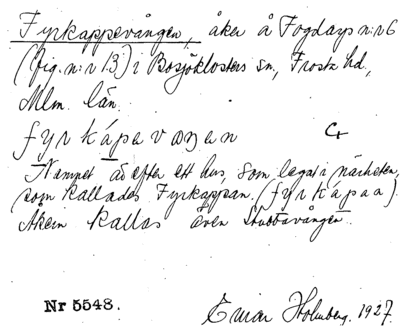 Fyrkappevången, åker å Fogdarp n:r 6
(fig. n:r 13) i Bosjöklosters sn, Frosta hd,
Mlm. län.
fyrkápavaŋen
Namnet är efter ett hus, som legat i närheten,
som kallades Fyrkappan. (fyrkápaa).
Åkern kallas även Stubbavången.
Nr 5548.
Einar Holmberg. 1927.